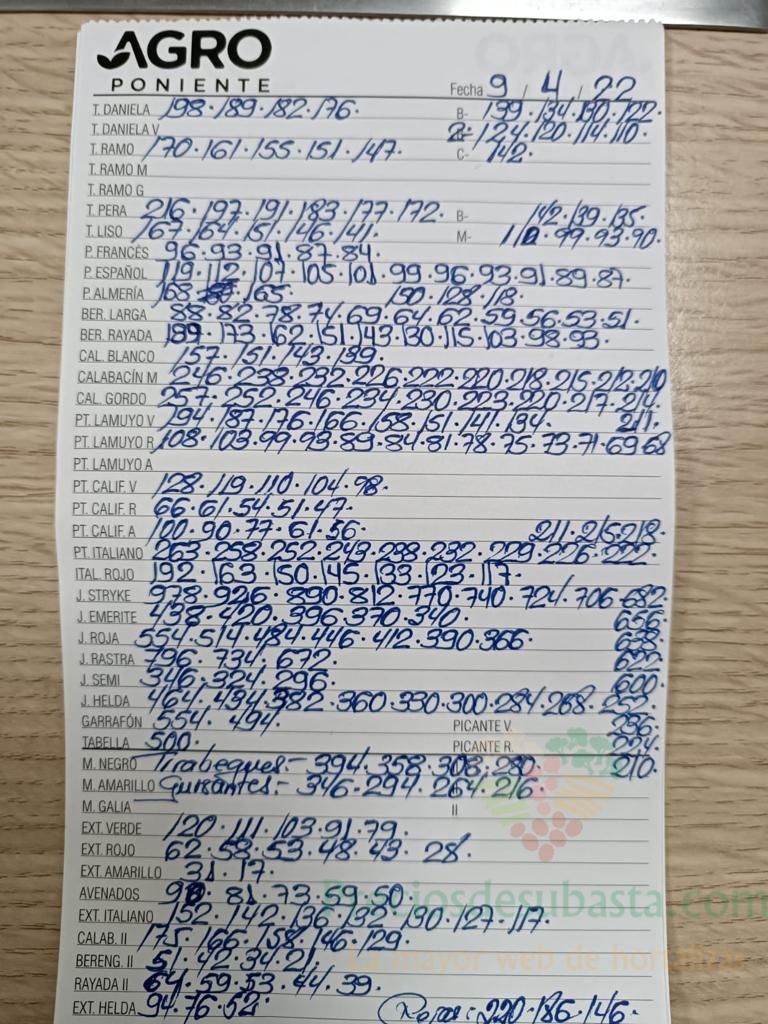 AGRO
PONIENTE
Fecha 9 / 4 / 22
T. DANIELA 198·189·182·176· B- 139·134·130·122
T. DANIELA V 2= 124·120·114·110·
T. RAMO 170·161·155·151·147· C- 142·
T. RAMO M
T. RAMO G
T. PERA 216·197·191·183·177·172· B- 142·139·135·
T. LISO 167·164·151·146·141· M- 110·99·93·90·
P. FRANCÉS 96·93·91·87·84·
P. ESPAÑOL 119·112·107·105·101·99·96·93·91·89·87·
P. ALMERÍA 168· 165· 150·128·118·
BER. LARGA 88·82·78·74·69·64·62·59·56·53·51·
BER. RAYADA 189·173·162·151·143·130·115·103·98·93·
CAL. BLANCO 157·151·143·139·
CALABACÍN M 246·238·232·226·222·220·218·215·212·210
CAL. GORDO 257·252·246·234·230·223·220·217·214·
211·
PT. LAMUYO V 194·187·176·166·158·151·141·134·
PT. LAMUYO R 108·103·99·93·89·84·81·78·75·73·71·69·68
PT. LAMUYO A
PT. CALIF. V 128·119·110·104·98·
PT. CALIF. R 66·61·54·51·47·
PT. CALIF. A 100·90·77·61·56· 211·215·218·
PT. ITALIANO 263·258·252·243·238·232·229·226·222·
ITAL. ROJO 192·163·150·145·133·123·117·
J. STRYKE 978·926·890·812·770·740·724·706·682·
J. EMERITE 438·420·396·370·340· 656·
J. ROJA 554·514·484·446·412·390·366 638·
J. RASTRA 796·734·672· 622·
J. SEMI 346·324·296· 600·
J. HELDA 464·434·382·360·330·300·284·268·252·
GARRAFÓN 554·494· PICANTE V. 236·
TABELLA 500· PICANTE R. 224·
M. NEGRO Tirabeques:- 394·358·308·280· 210·
M. AMARILLO Guisantes:- 346·294·264·216·
M. GALIA II
EXT. VERDE 120·111·103·91·79·
EXT. ROJO 62·58·53·48·43· 28·
EXT. AMARILLO 31·17·
AVENADOS 90·81·73·59·50·
Preciosdesubasta.com
EXT. ITALIANO 152·142·136·132·130·127·117·
CALAB. II 175·166·158·146·129·
La mayor web de hortalizas
BERENG. II 51·42·34·21·
RAYADA II 64·59·53·44·39·
EXT. HELDA 94·76·52· Rojas: 220·186·146·